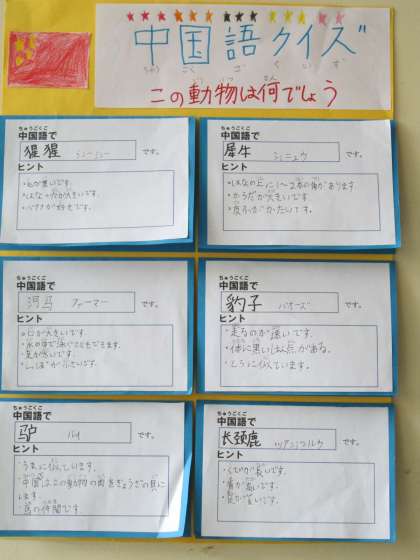 中国語クイズ
ちゅう ごく ご く い ず
この動物は何でしょう
ちゅうごくご
中国語で
猩猩 シンーシンー です。
ヒント
・色が黒いです。
・はなのあなが大きいです。
・バナナが好きです。
ちゅうごくご
中国語で
犀牛 シニュウ です。
ヒント
・はなの上に1〜2本の角があります
・からだが大きいです
・皮ふがかたいです。
ちゅうごくご
中国語で
河马 ファーマー です。
ヒント
・口が大きいです。
・水の中で泳ぐこともできます。
・足が短いです。
・しっぽが小さいです。
ちゅうごくご
中国語で
豹子 バオーズ です。
ヒント
・走るのが速いです。
・体に黒いはん点がある。
・とらに似ています。
ちゅうごくご
中国語で
驴 ルイ です。
ヒント
・うまに似ています。
・中国はこの動物の肉をぎょうざの具に
します。
・馬の仲間です
ちゅうごくご
中国語で
长颈鹿 ツァンジンルウ です。
ヒント
・くびが長いです。
・背が高いです。
・足が長いです。